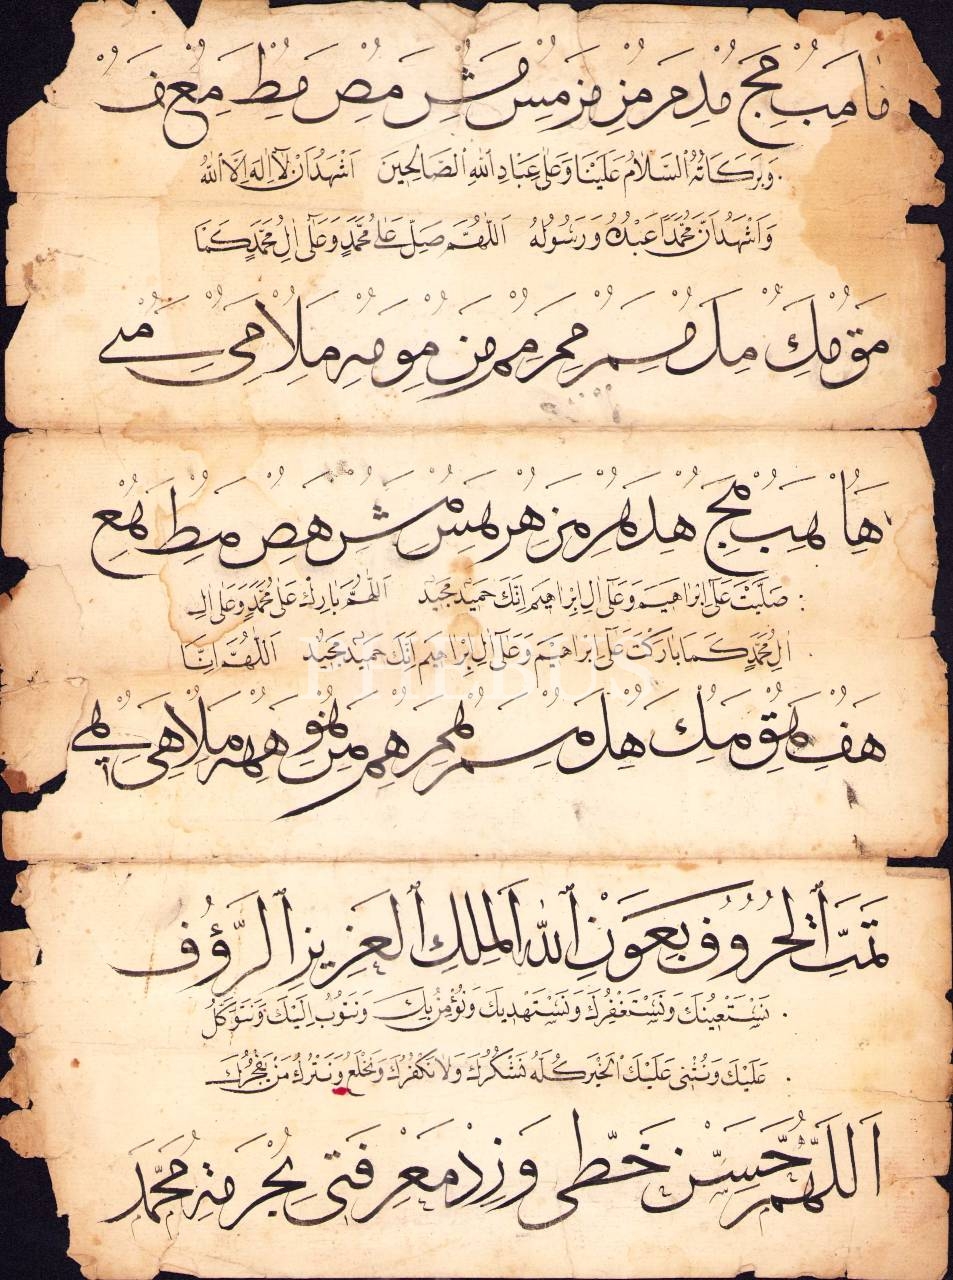 مَا مِبُ مِجَ مُدِ مَر مُزِ مَز مِسُ مَشِ مُص مَطِ مُع مِفَ
وَبَرَكَاتُهُ اَلسَّلَامُ عَلَيْنَا وَعَلٰى عِبَادِ اللّٰهِ الصَّالِحِينَ اَشْهَدُ اَنْ لَآ اِلٰهَ اِلَّا اللّٰهُ
وَاَشْهَدُ اَنَّ مُحَمَّدًا عَبْدُهُ وَرَسُولُهُ اَللّٰهُمَّ صَلِّ عَلٰى مُحَمَّدٍ وَعَلٰٓى اٰلِ مُحَمَّدٍ كَمَا
مَق مُكِ مَل مِسُم مَر مِمُ مَن مِو مُه مَلَا مِى مُے
هَا هِبُ هجَ هُدِ هَر مُزِ هَر هِسُ مَشِ هُص مَطِ هُع
صَلَّيْتَ عَلٰٓى اِبْرَاهِيمَ وَعَلٰٓى اٰلِ اِبْرَاهِيمَ اِنَّكَ حَمِيدٌ مَجِيدٌ اَللّٰهُمَّ بَارِكْ عَلٰى مُحَمَّدٍ وَعَلٰى اٰلِ
اٰلِ مُحَمَّدٍ كَمَا بَارَكْتَ عَلٰٓى اِبْرَاهِيمَ وَعَلٰٓى اٰلِ اِبْرَاهِيمَ اِنَّكَ حَمِيدٌ مَجِيدٌ اَللّٰهُمَّ اِنَّا
PHEBUS
هَف هِقُ مَك هُل مَسِم هُم هَم هِو هُه مَلَا هِى هُے
تَمَّتِ الْحُرُوفُ بِعَوْنِ اللّٰهِ الْمَلِكِ الْعَزِيزِ الرَّؤُفِ
نَسْتَعِينُكَ وَنَسْتَغْفِرُكَ وَنَسْتَهْدِيكَ وَنُؤْمِنُ بِكَ وَنَتُوبُ اِلَيْكَ وَنَتَوَكَّلُ
عَلَيْكَ وَنُثْنِى عَلَيْكَ الْخَيْرَ كُلَّهُ نَشْكُرُكَ وَلَا نَكْفُرُكَ وَنَخْلَعُ وَنَتْرُكُ مَنْ يَفْجُرُكَ
اَللّٰهُمَّ حَسِّنْ خَطِّى وَزِدْ مَعْرِفَتِى بِحُرْمَةِ مُحَمَّدٍ